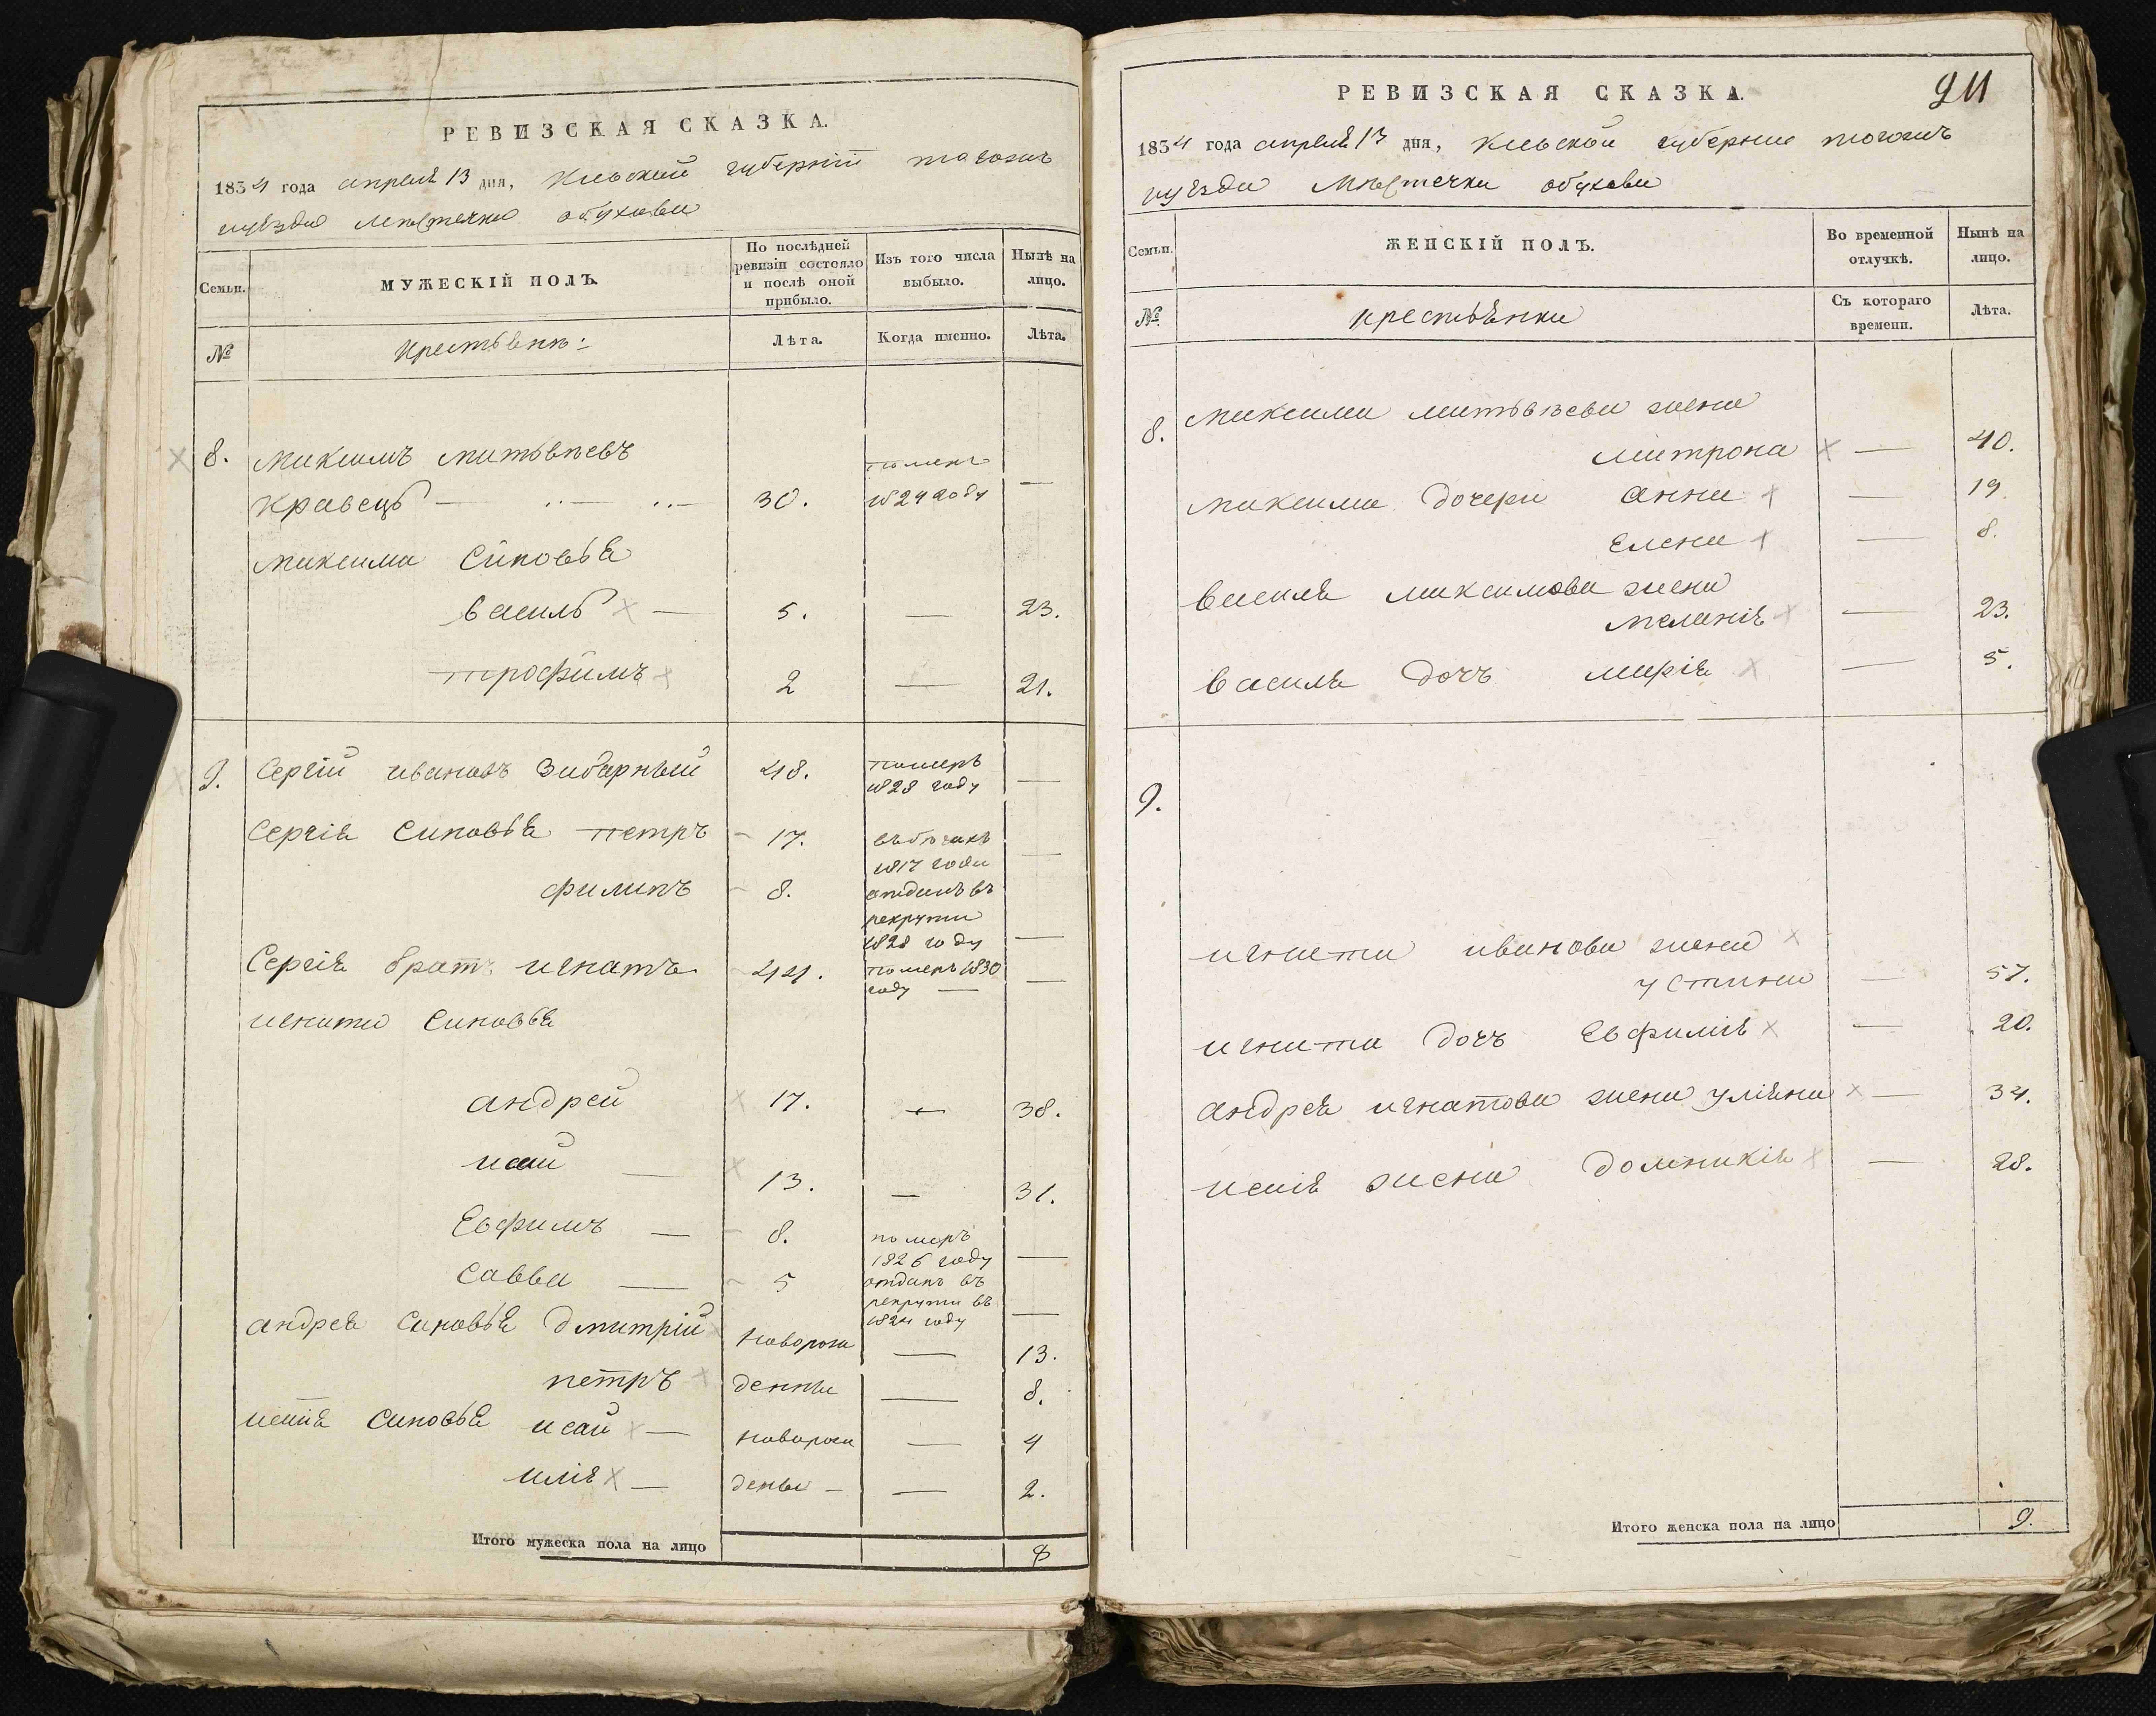 РЕВИЗСКАЯ СКАЗКА.
1834 года апреля 13 дня, Киевской губерніи тогожъ
уѣзда Местечка обухова
Семьи.
МУЖЕСКІЙ ПОЛЪ.
По послѣдней ревизіи состояло и послѣ оной прибыло.
Изъ того числа выбыло.
Нынѣ на лицо.
№
Крестьяне:
Лѣта.
Когда именно.
Лѣта.
8. Максимъ матвѣевъ
Кравець — 30. померъ 1824 году —
максима Синовья
василь × — 5. — 23.
трофимъ × 2 — 21.
9. Сергій ивановъ Забарный 48. померъ 1828 году —
Сергія Синовья петръ 17. 1817 года —
филипъ 8. отданъ въ рекруты 1828 году —
Сергія братъ игнатъ 44. померъ 1830 году — —
игната Синовья
андрей × 17. — 38.
исай — × 13. — 31.
Евфимъ — 8. померъ 1826 году —
Савва — 5 отданъ въ рекруты въ 1824 году —
андрея Синовья дмитрій новорож — 13.
петръ × денны — 8.
исаія Синовья исай × — новорож — 4
илія × — денны — — 2.
Итого мужеска пола на лицо 8
РЕВИЗСКАЯ СКАЗКА.
911
1834 года апреля 13 дня, Киевской губерніи тогожъ
уѣзда Местечка обухова
Семьи.
ЖЕНСКІЙ ПОЛЪ.
Во временной отлучкѣ.
Нынѣ на лицо.
№
крестьянки
Съ котораго времени.
Лѣта.
8. максима матвѣева жена
митрона × — 40.
максима дочери анна × — 19.
Елена × — 8.
василя максимова жена
меланія × — 23.
василя дочъ марія × — 5.
9.
игната иванова жена ×
устина — 57.
игната дочъ Евфимія × — 20.
андрея игнатова жена уліяна × — 34.
исаія жена домникія × — 28.
Итого женска пола на лицо 9.